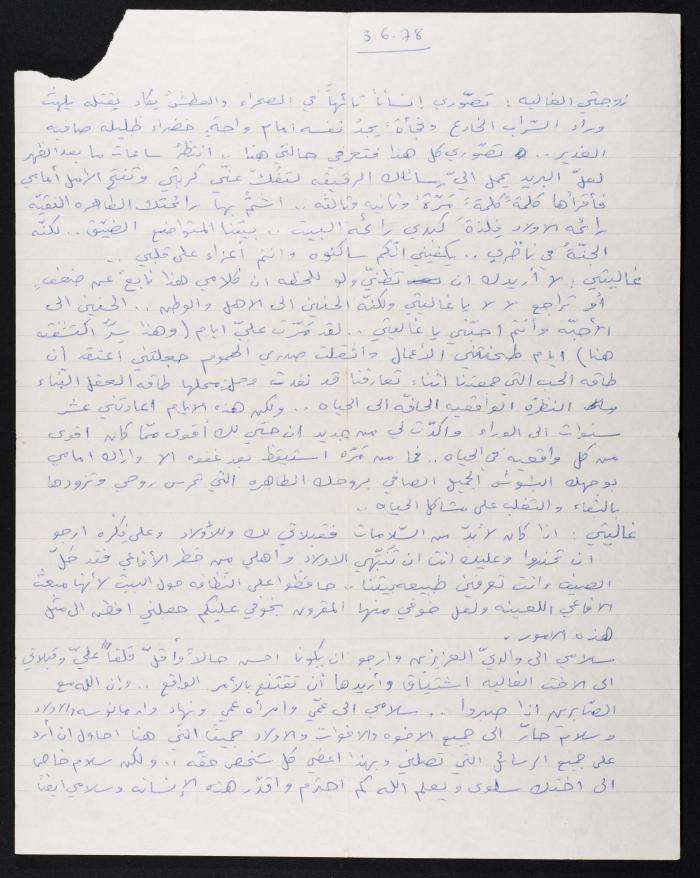 3.6.78
زوجتي الغاليه : تصوّري إنساناً تائهاً في الصحراء والعطش يكاد يقتله يلهث
وراء السّراب الخادع وفجأة يجدُ نفسه امام واحةٍ خضراء ظليله صافيه
الغدير .. تصوّري كل هذا فتعرفي حالتي هنا .. انتظرُ ساعات ما بعد الظهر
لعلّ البريد يحمل اليّ رسائلك الرقيقه لتفُكّ عنّي كربتي وتفتح الأمل أمامي
فأقرأها كلمةً كلمةً مَرّةً وثانيه وثالثه .. اشتمُّ بها رائحتك الطاهره النقيّه
رائحه الاولاد فِلذةَ كبدي رائحه البيت .. بيتنا المتواضع الضيّق .. لكنّه
الجنّةُ في ناظري .. يكفيني انّكم ساكنوه وانتم أعزاء على قلبي ..
غاليتي : لا أريدك ان تظنّي ولو للحظه ان كلامي هذا نابعٌ عن ضعفٍ
أو تراجع لا لا يا غاليتي ولكنّه الحنين الى الاهل والوطن .. الحنين الى
الأحبّه وأنتم احبّتي يا غاليتي .. لقد مَرّت عليّ ايام (وهذا سِرٌّ اكتشفته
هنا) ايام طحنتني الأعمال واثقلت صدري الهموم جعلتني اعتقد أن
طاقه الحب التي جمعتنا اثناء تعارفنا قد نفدت وحلّ محلها طاقه العقل البنّاء
النظرة الواقعيه الجافّه الى الحياه .. ولكن هذه الايام اعادتني عشر
سنوات الى الوراء واكدّت لي من جديد ان حبّي لك أقوى ممّا كان اقوى
من كل واقعيه في الحياه .. فما من مَرّه استيقظ بعد غفوه الا واراك امامي
بوجهك البشوش الجميل الصافي بروحك الطاهره التي تحرس روحي وتزودها
بالبقاء و التغلب على مشاكل الحياه ..
غاليتي : اذا كان لا بُدّ من السّلامات فقبلاتي لك وللأولاد وعلى فِكْره ارجو
ان تحذروا وعليك انت ان تنبّهي الاولاد واهلي من خطر الأفاعي فقد حَلّ
الصيف وانت تعرفين طبيعه بيتنا .. حافظوا على النظافه حول البيت لأنها مبعث
الافاعي اللعينه ولعل خوفي منها المقرون بخوفي عليكم جعلني افطن الى مثل
هذه الامور .
سلامي الى والديّ العزيزين وارجو ان يكونا احسن حالاً وأقلّ قلقاً عليّ وقبلاتي
الى الاخت الغاليه اشتياق وأريدها أن تقتنع بالأمر الواقع .. وإن الله مع
الصّابرين اذا صبروا .. سلامي الى عمّي وامرأه عمي ونهاد والاولاد
وسلام حارّ الى جميع الاخوه والاخوات والاولاد جميعا التي هنا احاول ان أرد
على جميع الرسائل التي تصلني وبهذا اعطي كل شخص حقّه .. ولكن سلام خاص
الى اختك سلوى ويعلم الله كم احترم واقدّر هذه الإنسانه وسلامي ايضاً